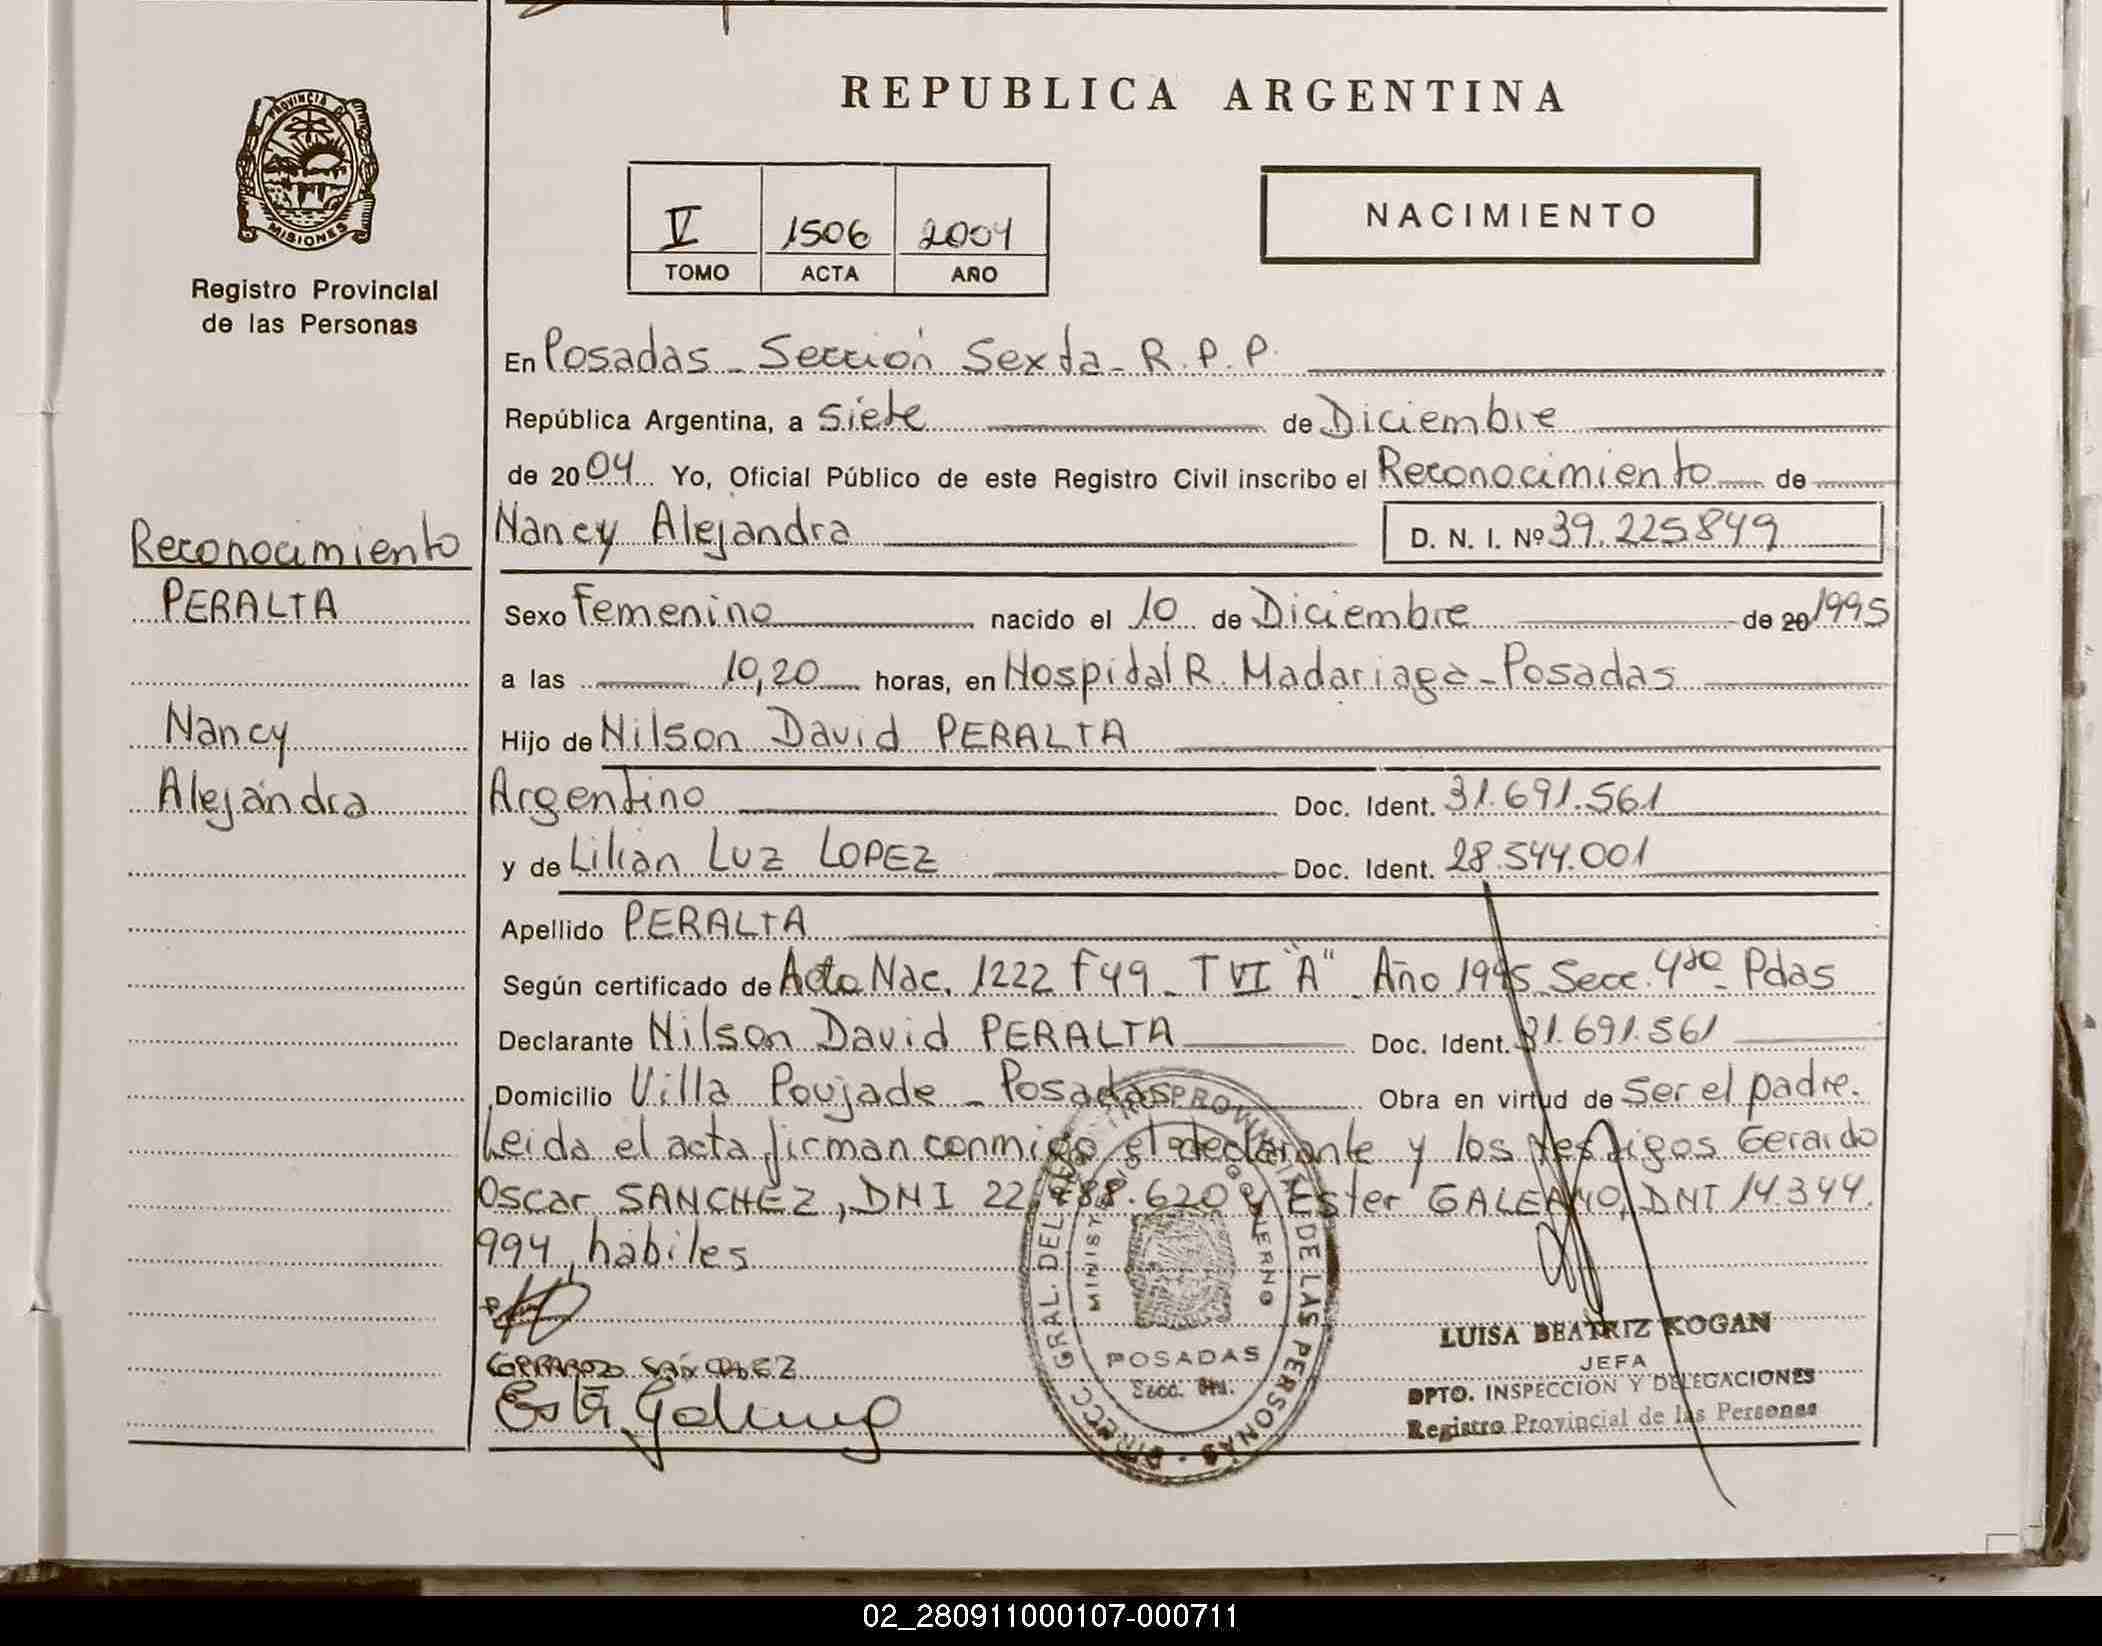 REPUBLICA ARGENTINA
PROVINCIA DE
MISIONES
Registro Provincial
de las Personas
V 1506 2004
TOMO ACTA AÑO
NACIMIENTO
En Posadas - Sección Sexta - R.P.P.
República Argentina, a Siete de Diciembre
de 2004 Yo, Oficial Público de este Registro Civil inscribo el Reconocimiento de
Nancy Alejandra D. N. I. Nº 39.225.849
Reconocimiento
PERALTA
Nancy
Alejandra
Sexo Femenino nacido el 10 de Diciembre de 20 1995
a las 10,20 horas, en Hospital R. Madariaga - Posadas
Hijo de Nilson David PERALTA
Argentino Doc. Ident. 31.691.561
y de Lilian Luz LOPEZ Doc. Ident. 28.544.001
Apellido PERALTA
Según certificado de Acta Nac. 1222 F 49 - T VI "A" - Año 1995 - Secc. 4ta - Pdas
Declarante Nilson David PERALTA Doc. Ident. 31.691.561
Domicilio Villa Poujade - Posadas Obra en virtud de Ser el padre.
Leida el acta firman conmigo el declarante y los testigos Gerardo
Oscar SANCHEZ, DNI 22.488.620 y Ester GALEANO, DNI 14.344.
994, habiles
GERARDO SANCHEZ
DIRECC GRAL. DEL REG. PROVINCIAL DE LAS PERSONAS
MINISTERIO DE GOBIERNO
POSADAS
Secc. 6ta.
LUISA BEATRIZ KOGAN
JEFA
DPTO. INSPECCION Y DELEGACIONES
Registro Provincial de las Personas
02_280911000107-000711